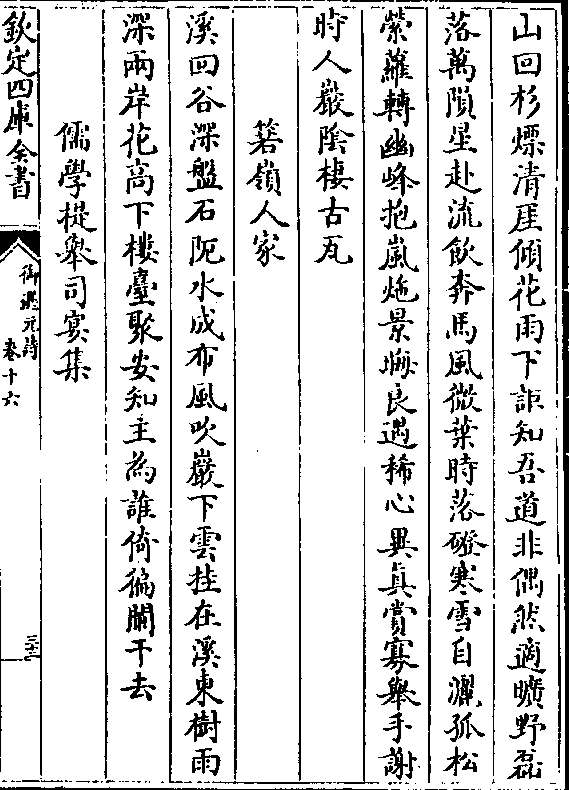 山回杉㯹清厓傾花雨下詎知吾道非偶然適曠野磊
落萬隕星赴流飲奔馬風微葉時落磴寒雪自灑孤松
縈蘿轉幽峰抱嵐炧景晦良遇稀心異真賞寡舉手謝
時人巖陰棲古瓦
箬嶺人家
溪回谷深盤石阨水成布風吹巖下雲挂在溪東樹雨
深兩岸花高下樓臺聚安知主為誰倚徧闌干去
儒學提舉司宴集
欽定四庫全書
御選元詩
卷十六
三